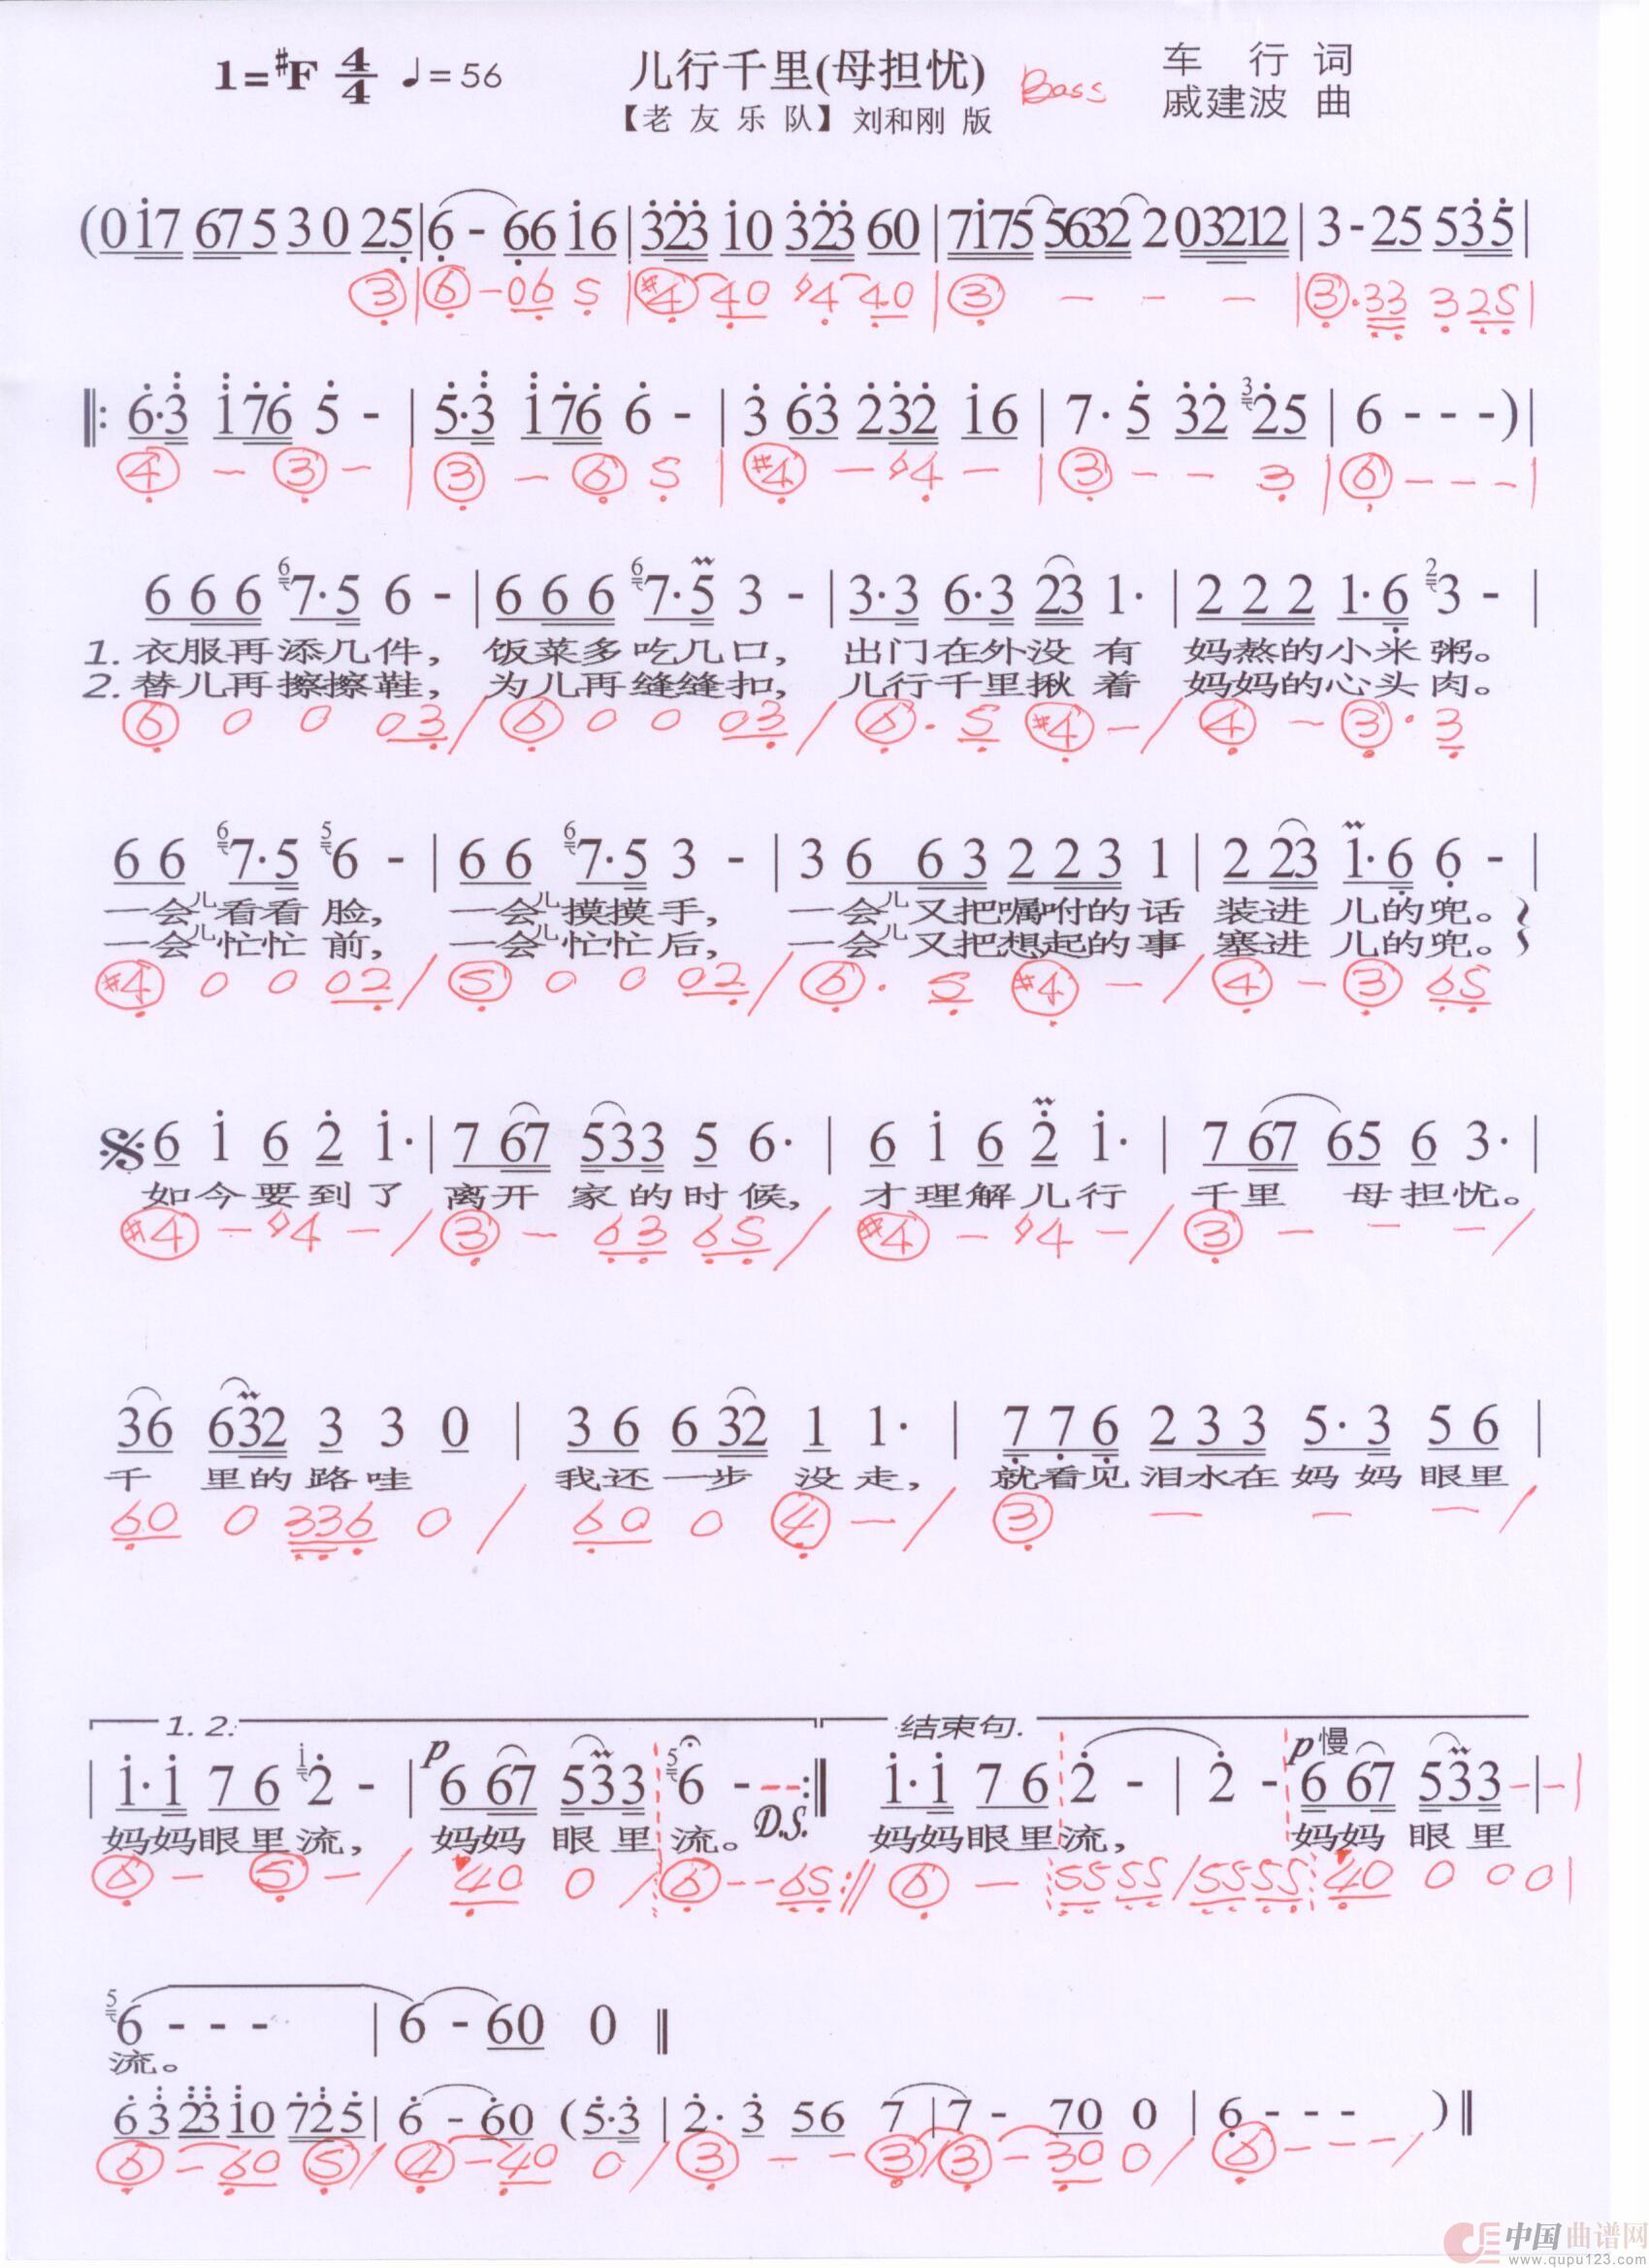 1=#F 4/4 ♩=56 儿行千里(母担忧) Bass 车 行 词
【老 友 乐 队】刘和刚 版 戚建波 曲
(0 i7 67 5 3 0 25|6 - 66 i6|323 i0 323 60|7i75 5632 2 03212|3 - 25 535|
③|⑥ - 06 5|#4 40 ♮4 40|③ - - -|③·33 3 25|
‖: 6·3 i76 5 - | 5·3 i76 6 - | 3 63 232 i6 | 7· 5 32 3 25 | 6 - - -)|
④ - ③ - | ③ - ⑥ 5 | #4 - ♮4 - | ③ - - 3 | ⑥ - - - |
6 6 6 6 7·5 6 - | 6 6 6 6 7·5 3 - | 3·3 6·3 23 1· | 2 2 2 1·6 2 3 - |
1. 衣服再添几件, 饭菜多吃几口, 出门在外没 有 妈熬的小米粥。
2. 替儿再擦擦鞋, 为儿再缝缝扣, 儿行千里揪 着 妈妈的心头肉。
⑥ 0 0 03/ ⑥ 0 0 03 / ⑥· 5 #4 - / ④ - ③· 3
6 6 6 7·5 5 6 - | 6 6 6 7·5 3 - | 3 6 6 3 2 2 3 1 | 2 23 1·6 6 - |
一会儿看看 脸, 一会儿摸摸手, 一会儿又把嘱咐的话 装进 儿的兜。
一会儿忙忙 前, 一会儿忙忙后, 一会儿又把想起的事 塞进 儿的兜。
#4 0 0 02 / ⑤ 0 0 02 / ⑥· 5 #4 - / ④ - ③ 65
6 i 6 2 i· | 7 67 533 5 6· | 6 i 6 2 i· | 7 67 65 6 3· |
如今要到了 离开 家的时候, 才理解儿行 千里 母担忧。
#4 - ♮4 - / ③ - 63 65 / #4 - ♮4 - / ③ - - - /
36 632 3 3 0 | 3 6 6 32 1 1· | 7 7 6 2 3 3 5·3 5 6 |
千 里的路哇 我还一步 没走, 就看见泪水在妈妈眼里
60 0 336 0 / 60 0 ④ - / ③ - - - /
1. 2. 结束句.
| i·i 7 6 i 2 - | p 6 67 533 5 6 - --:‖ i·i 7 6 2 - | 2 - p 慢 6 67 533 -|-|
D.S.
妈妈眼里流, 妈妈 眼里 流。 妈妈眼里流, 妈妈 眼里
⑥ - ⑤ - / 40 0 / ⑥ -- 65 :‖ ⑥ - 55 55 / 55 55 40 0 0 0 |
5 6 - - - | 6 - 60 0 ‖
流。
63 23 i0 725 | 6 - 60 (5·3 | 2· 3 56 7 | 7 - 70 0 | 6 - - - )‖
⑥ - 60 ⑤ / ④ - 40 0 / ③ - - ③ / ③ - 30 0 / ⑥ - - - /
中国曲谱网
www.qupu123.com